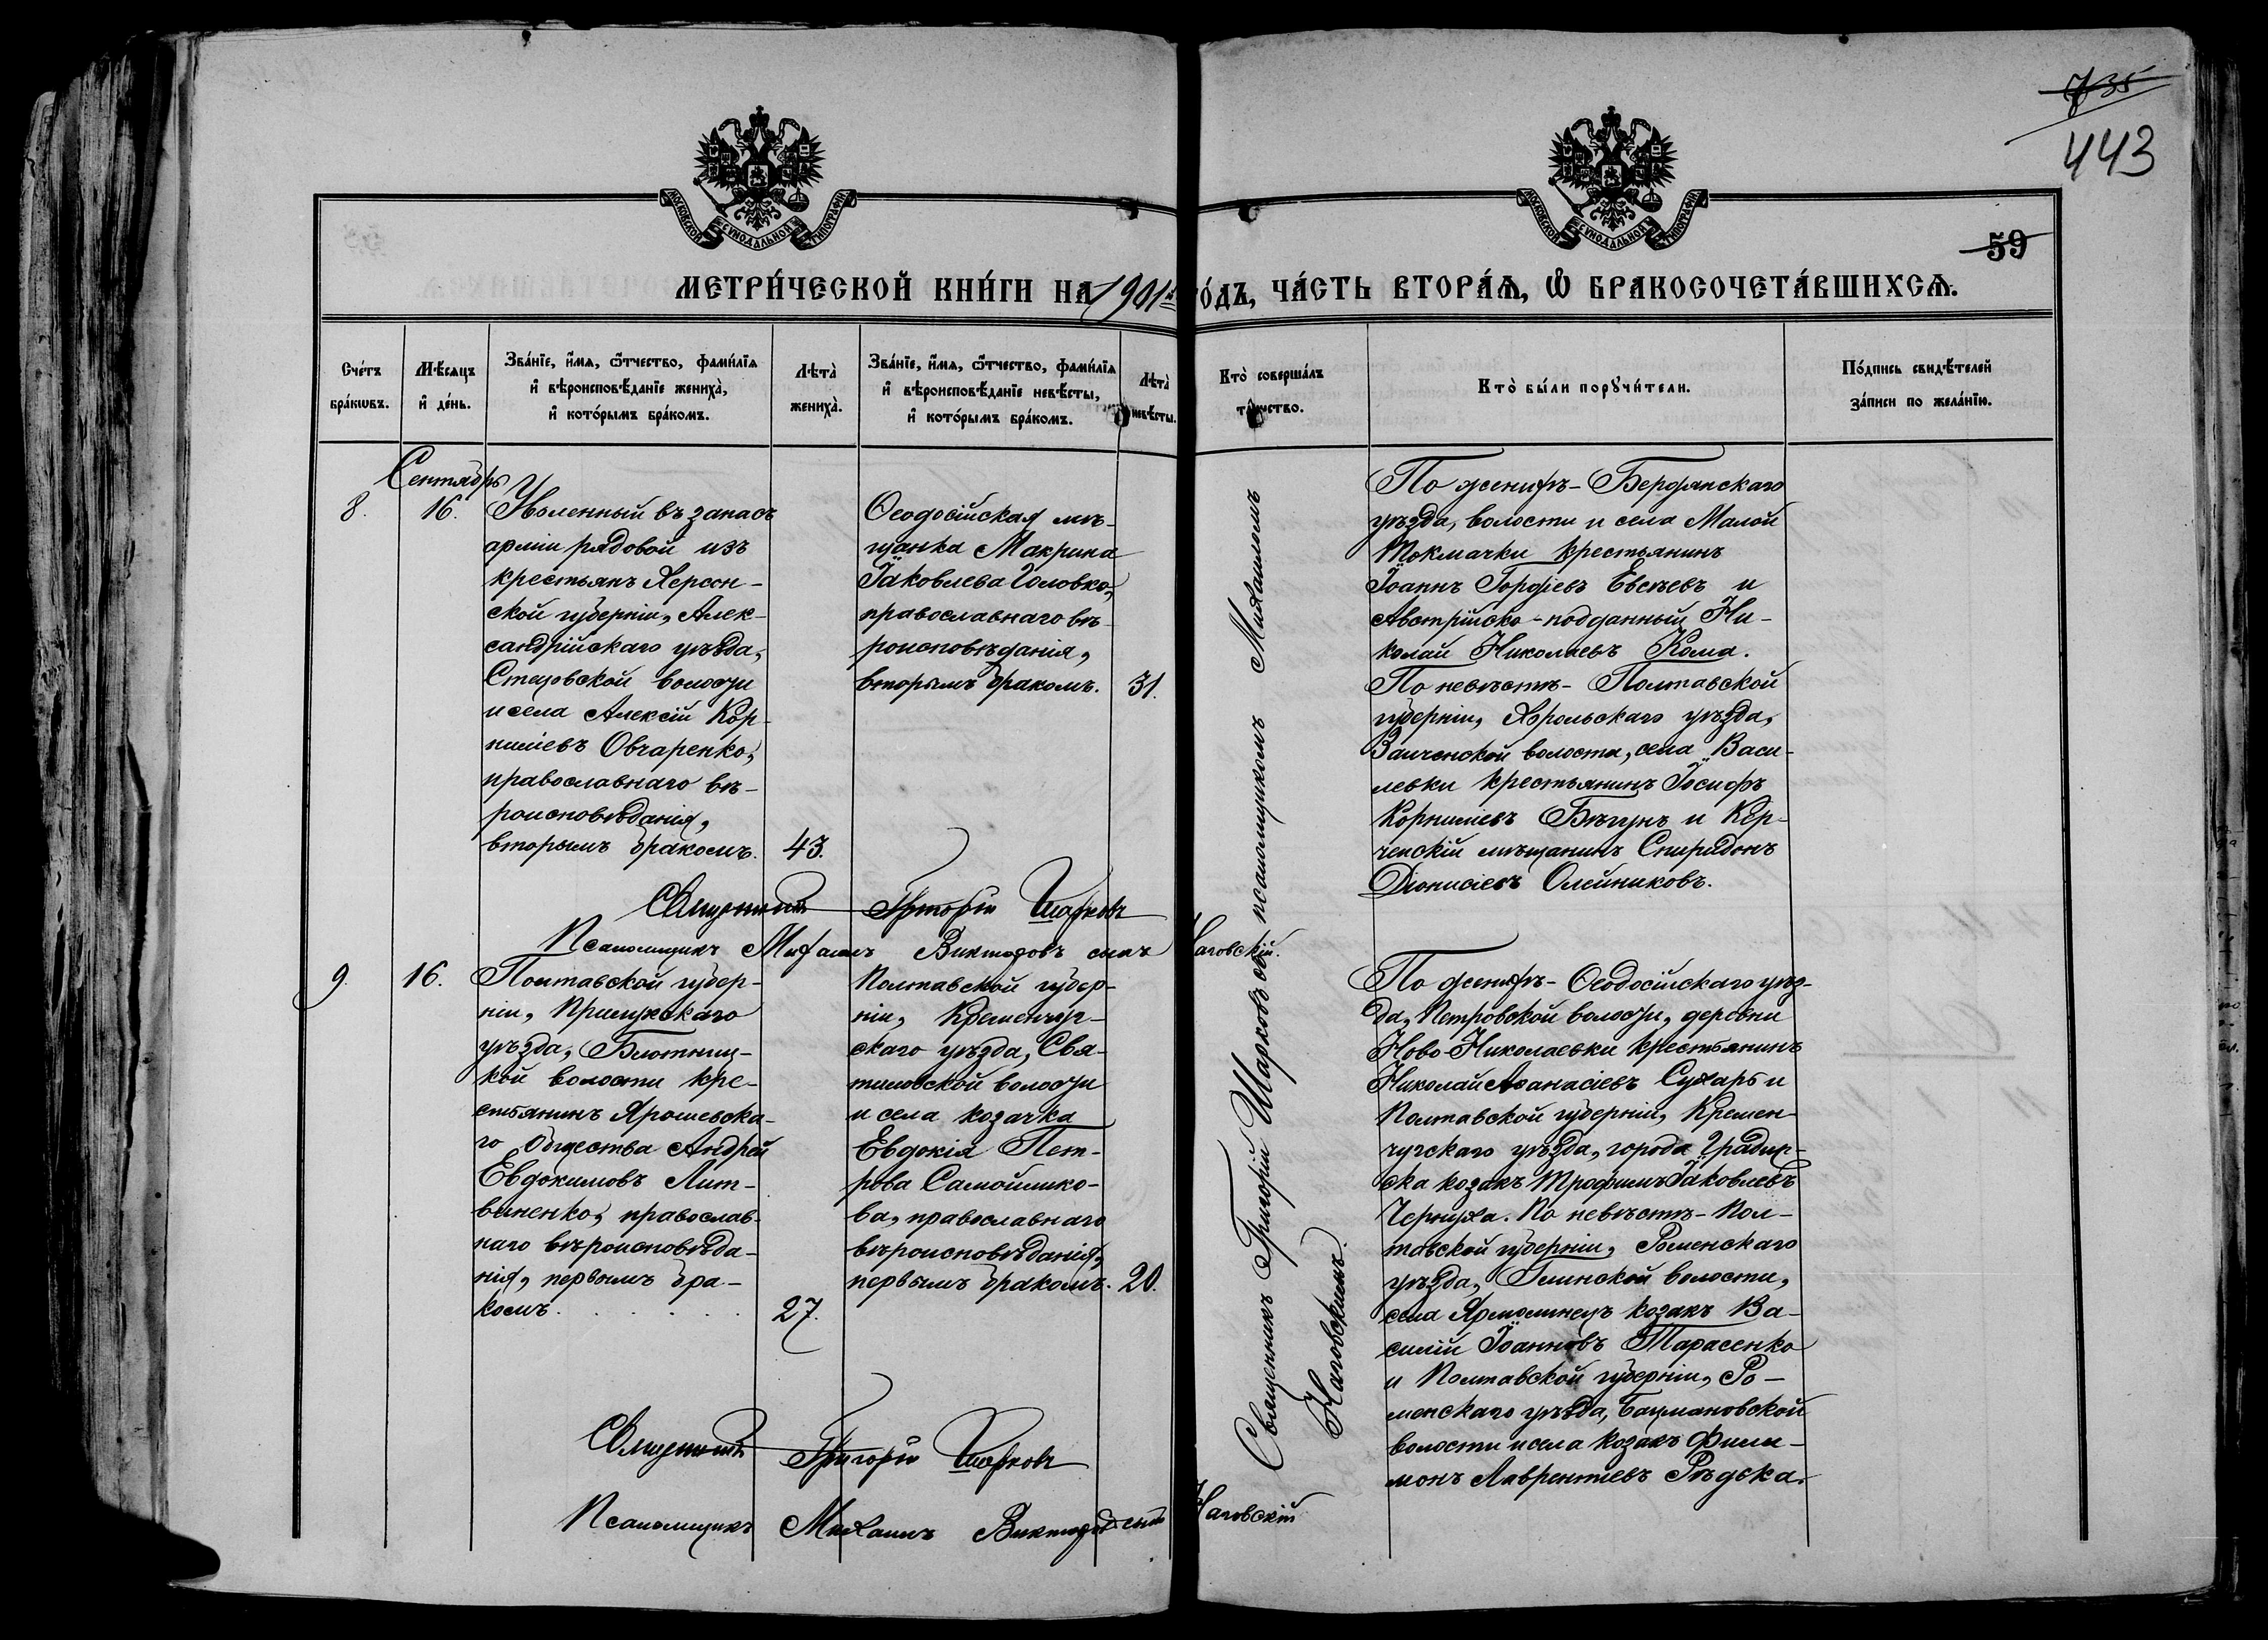 735
443
МОСКОВСКОЙ СѴНОДАЛЬНОЙ ТИПОГРАФІИ
МОСКОВСКОЙ СѴНОДАЛЬНОЙ ТИПОГРАФІИ
59
МЕТРИ́ЧЕСКОЙ КНИ́ГИ НА 1901й ГО́ДЪ, ЧА́СТЬ ВТОРА́Ѧ, Ѡ҆ БРАКОСОЧЕТА́ВШИХСѦ.
Сче́тъ бра́кѡвъ.
Мѣ́сѧцъ и҆ де́нь.
Зва́нїе, и҆́мѧ, ѻ҆́тчество, фами́лїѧ
и҆ вѣроисповѣ́данїе жениха̀,
и҆ кото́рымъ бра́комъ.
Лѣта̀ жениха̀.
Зва́нїе, и҆́мѧ, ѻ҆́тчество, фами́лїѧ
и҆ вѣроисповѣ́данїе невѣ́сты,
и҆ кото́рымъ бра́комъ.
Лѣта̀ невѣ́сты.
Кто̀ соверша́лъ
та́инство.
Кто̀ бы́ли порꙋчи́тели.
По́дпись свидѣ́телей
за́писи по жела́нїю.
Сентябрь
8.
16.
Уволенный въ запасъ
арміи рядовой изъ
крестьянъ Херсон-
ской губерніи, Алек-
сандрійскаго уѣзда,
Стецовской волости
и села Алексій Кор-
ниліевъ Овчаренко,
православнаго вѣ-
роисповѣданія,
вторымъ бракомъ.
43.
Ѳеодосійская мѣ-
щанка Макрина
Іаковлева Головко,
православнаго вѣ-
роисповѣданія,
вторымъ бракомъ.
31.
Священникъ Григорій Шарковъ съ псаломщикомъ Михаиломъ
Наговскимъ.
По женихѣ - Бердянскаго
уѣзда, волости и села Малой
Токмачки крестьянинъ
Іоаннъ Гордіевъ Евсѣевъ и
Австрійско-подданный Ни-
колай Николаевъ Кома.
По невѣстѣ - Полтавской
губерніи, Хорольскаго уѣзда,
Заиченской волости, села Васи-
левки крестьянинъ Іосифъ
Корниліевъ Бѣгунъ и Кер-
ченскій мѣщанинъ Спиридонъ
Діонисіевъ Олейниковъ.
Священникъ Григорій Шарковъ
Псаломщикъ Михаилъ Викторовъ сынъ Наговскій.
9.
16.
Полтавской губер-
ніи, Прилукскаго
уѣзда, Блотниц-
кой волости кре-
стьянинъ Ярошевска-
го общества Андрей
Евдокимовъ Лит-
виненко, православ-
наго вѣроисповѣда-
нія, первымъ бра-
комъ.
27.
Полтавской губер-
ніи, Кременчуг-
скаго уѣзда, Свя-
тиловской волости
и села козачка
Евдокія Пет-
рова Самойлико-
ва, православнаго
вѣроисповѣданія,
первымъ бракомъ.
20.
По женихѣ - Ѳеодосійскаго уѣз-
да, Петровской волости, деревни
Ново-Николаевки крестьянинъ
Николай Аѳанасіевъ Сухарь и
Полтавской губерніи, Кремен-
чугскаго уѣзда, города Градиж-
ска козакъ Трофимъ Іаковлевъ
Чернуха. По невѣстѣ - Пол-
тавской губерніи, Роменскаго
уѣзда, Глинской волости,
села Ярмолинецъ козакъ Ва-
силій Іоанновъ Тарасенко
и Полтавской губерніи, Ро-
менскаго уѣзда, Бацмановской
волости и села козакъ Фили-
монъ Лаврентіевъ Рѣдька.
Священникъ Григорій Шарковъ
Псаломщикъ Михаилъ Викторовъ сынъ Наговскій